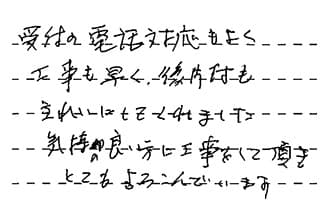 受付の電話対応もよく
工事も早く、後片付も
きれいにしてくれました
気持の良い方に工事をして頂き
とてもよろこんでいます